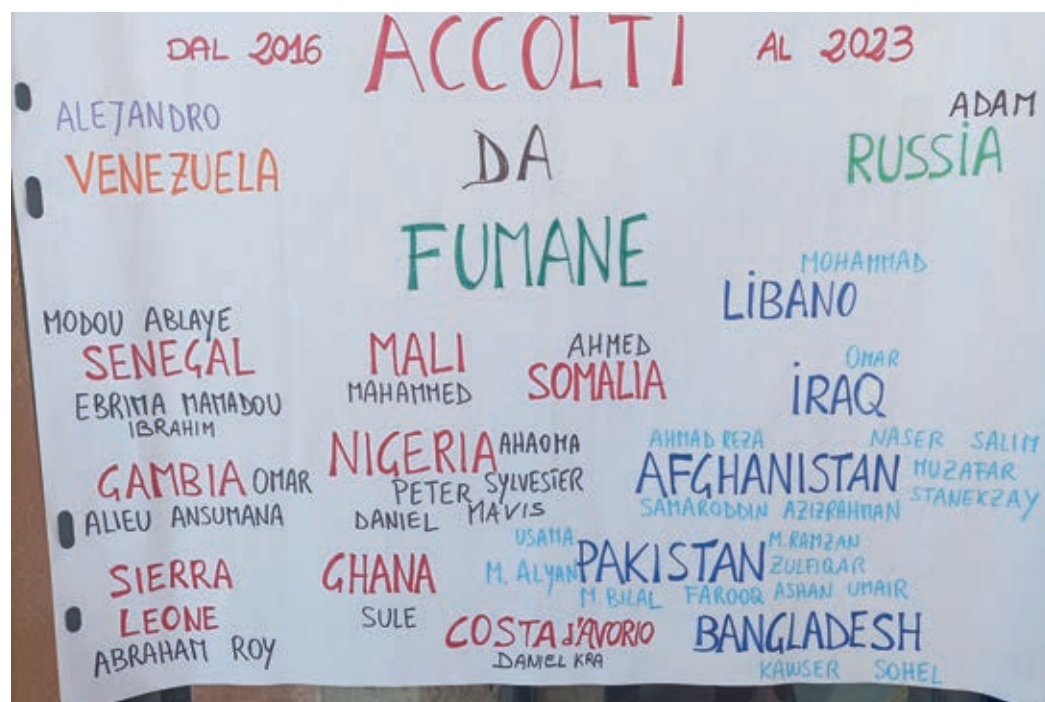 DAL 2016 ACCOLTI AL 2023
ALEJANDRO
VENEZUELA
DA
ADAM
RUSSIA
FUMANE
MOHAMMAD
LIBANO
MODOU ABLAYE
SENEGAL
EBRIMA MAMADOU
IBRAHIM
MALI
MAHAMMED
AHMED
SOMALIA
OMAR
IRAQ
GAMBIA OMAR
ALIEU ANSUMANA
NIGERIA AHAOMA
PETER SYLVESTER
DANIEL MAVIS
AHMAD REZA NASER SALIM
AFGHANISTAN MUZAFAR
STANEKZAY
SAMARODDIN AZIZRAHMAN
SIERRA
LEONE
ABRAHAM ROY
GHANA
SULE
USAMA
M. ALYAN PAKISTAN M. RAMZAN
ZULFIQAR
M. BILAL FAROOQ ASHAN UMAIR
COSTA d'AVORIO
DANIEL KRA
BANGLADESH
KAWSER SOHEL